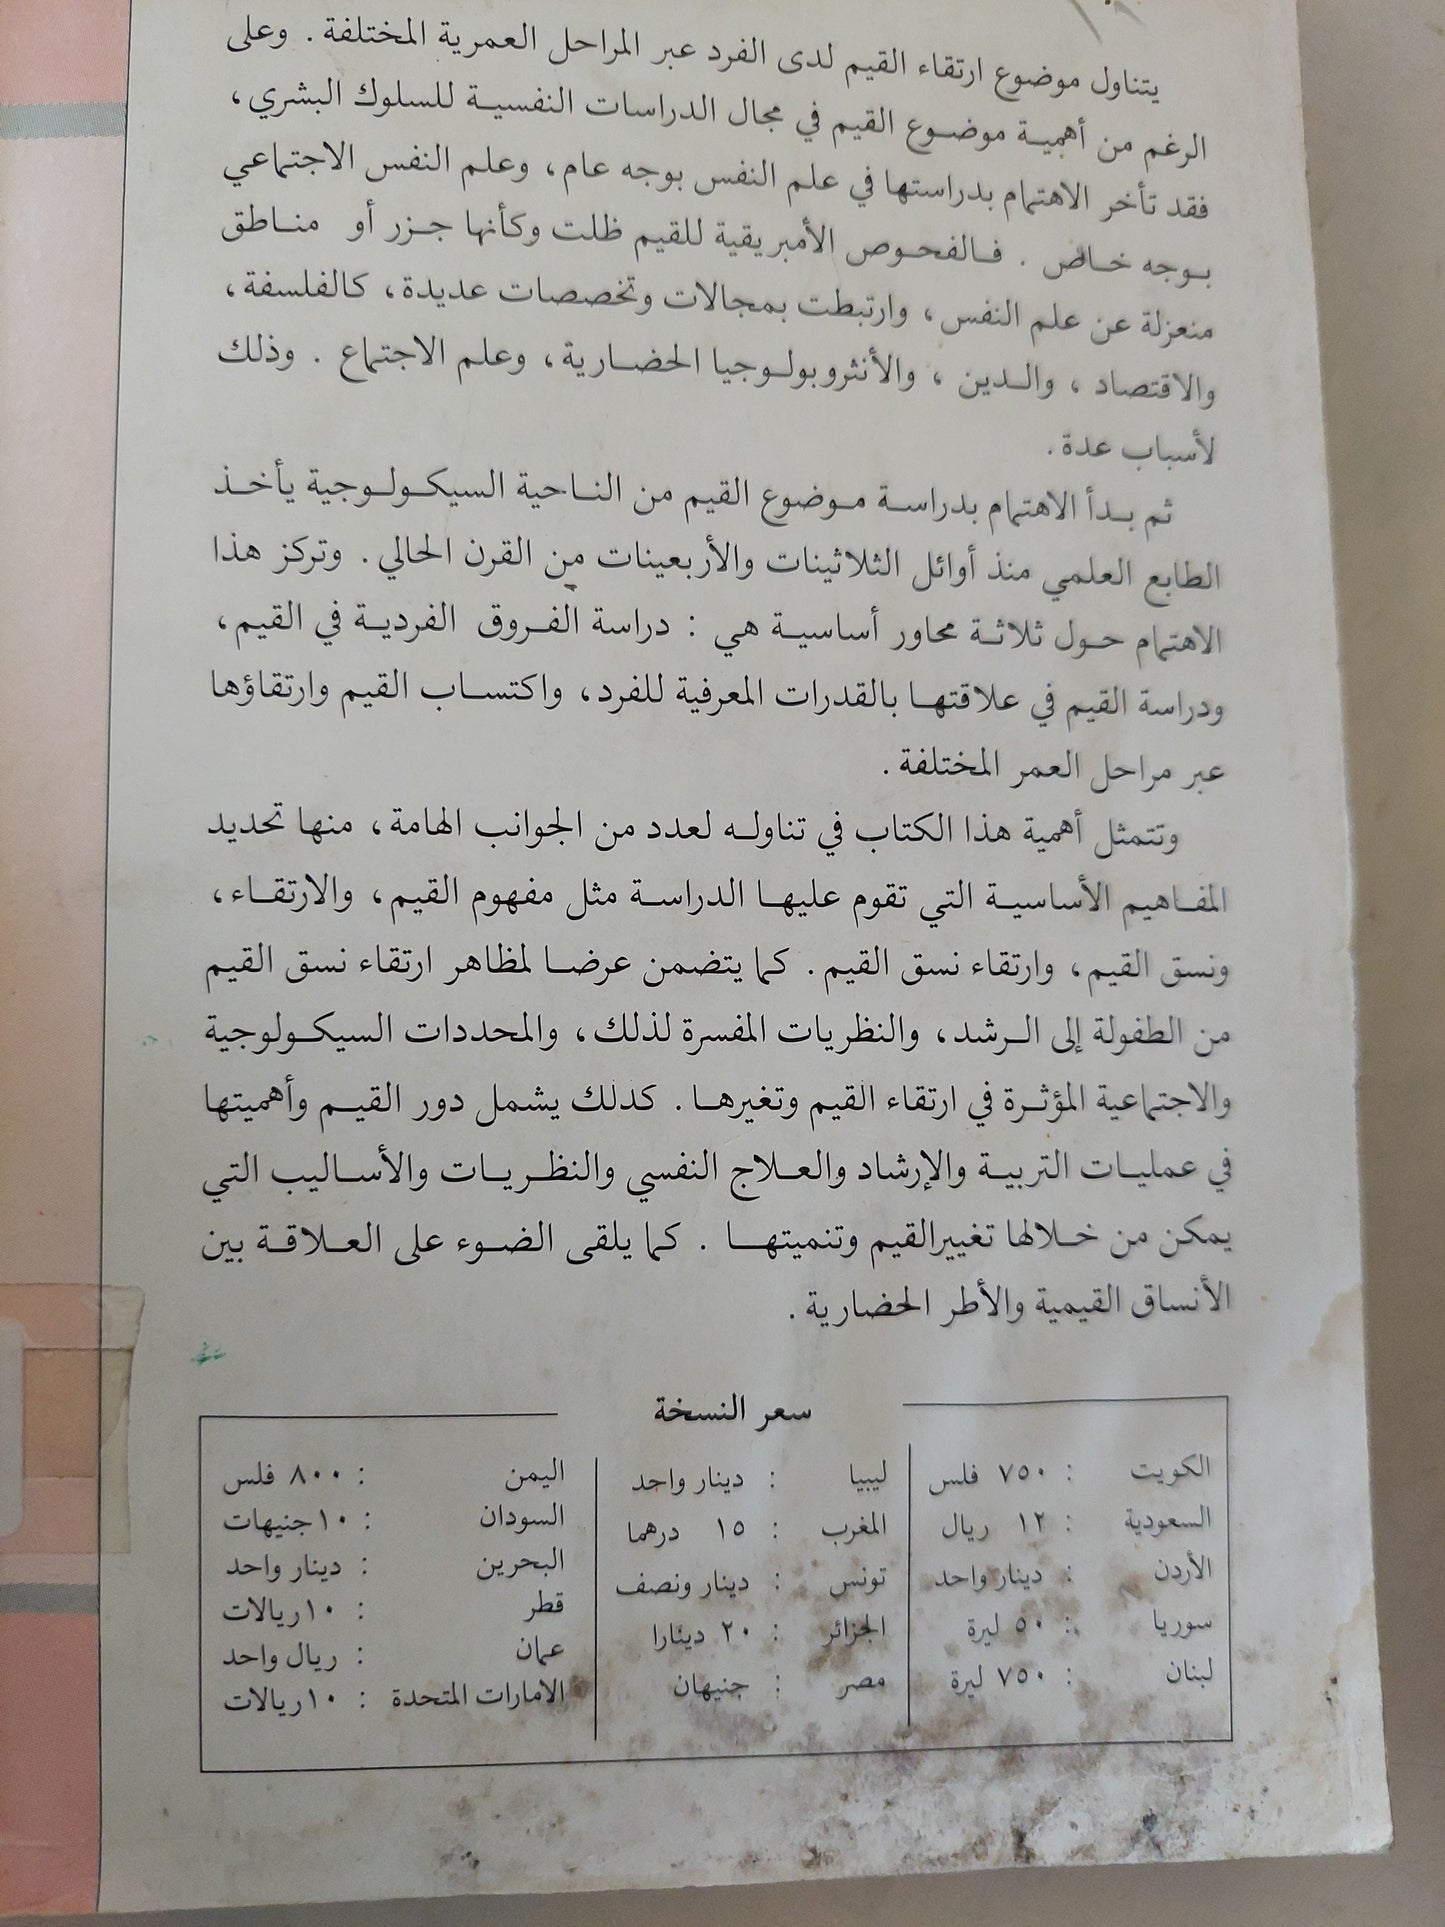 يتناول موضوع ارتقاء القيم لدى الفرد عبر المراحل العمرية المختلفة . وعلى
الرغم من أهمية موضوع القيم في مجال الدراسات النفسية للسلوك البشري ،
فقد تأخر الاهتمام بدراستها في علم النفس بوجه عام ، وعلم النفس الاجتماعي
بوجه خاص . فالفحوص الأمبريقية للقيم ظلت وكأنها جزر أو مناطق
منعزلة عن علم النفس ، وارتبطت بمجالات وتخصصات عديدة ، كالفلسفة ،
والاقتصاد ، والدين ، والأنثروبولوجيا الحضارية ، وعلم الاجتماع . وذلك
لأسباب عدة .
ثم بدأ الاهتمام بدراسة موضوع القيم من الناحية السيكولوجية يأخذ
الطابع العلمي منذ أوائل الثلاثينات والأربعينات من القرن الحالي . وتركز هذا
الاهتمام حول ثلاثة محاور أساسية هي : دراسة الفروق الفردية في القيم ،
ودراسة القيم في علاقتها بالقدرات المعرفية للفرد ، واكتساب القيم وارتقاؤها
عبر مراحل العمر المختلفة .
وتتمثل أهمية هذا الكتاب في تناوله لعدد من الجوانب الهامة ، منها تحديد
المفاهيم الأساسية التي تقوم عليها الدراسة مثل مفهوم القيم ، والارتقاء ،
ونسق القيم ، وارتقاء نسق القيم . كما يتضمن عرضا لمظاهر ارتقاء نسق القيم
من الطفولة إلى الرشد ، والنظريات المفسرة لذلك ، والمحددات السيكولوجية
والاجتماعية المؤثرة في ارتقاء القيم وتغيرها . كذلك يشمل دور القيم وأهميتها
في عمليات التربية والإرشاد والعلاج النفسي والنظريات والأساليب التي
يمكن من خلالها تغيير القيم وتنميتها . كما يلقى الضوء على العلاقة بين
الأنساق القيمية والأطر الحضارية .
سعر النسخة
الكويت : ٧٥٠ فلس
السعودية : ١٢ ريال
الأردن : دينار واحد
سوريا : ٥٠ ليرة
لبنان : ٧٥٠ ليرة
ليبيا : دينار واحد
المغرب : ١٥ درهما
تونس : دينار ونصف
الجزائر : ٢٠ دينارا
مصر : جنيهان
اليمن : ٨٠٠ فلس
السودان : ١٠ جنيهات
البحرين : دينار واحد
قطر : ١٠ ريالات
عمان : ريال واحد
الامارات المتحدة : ١٠ ريالات